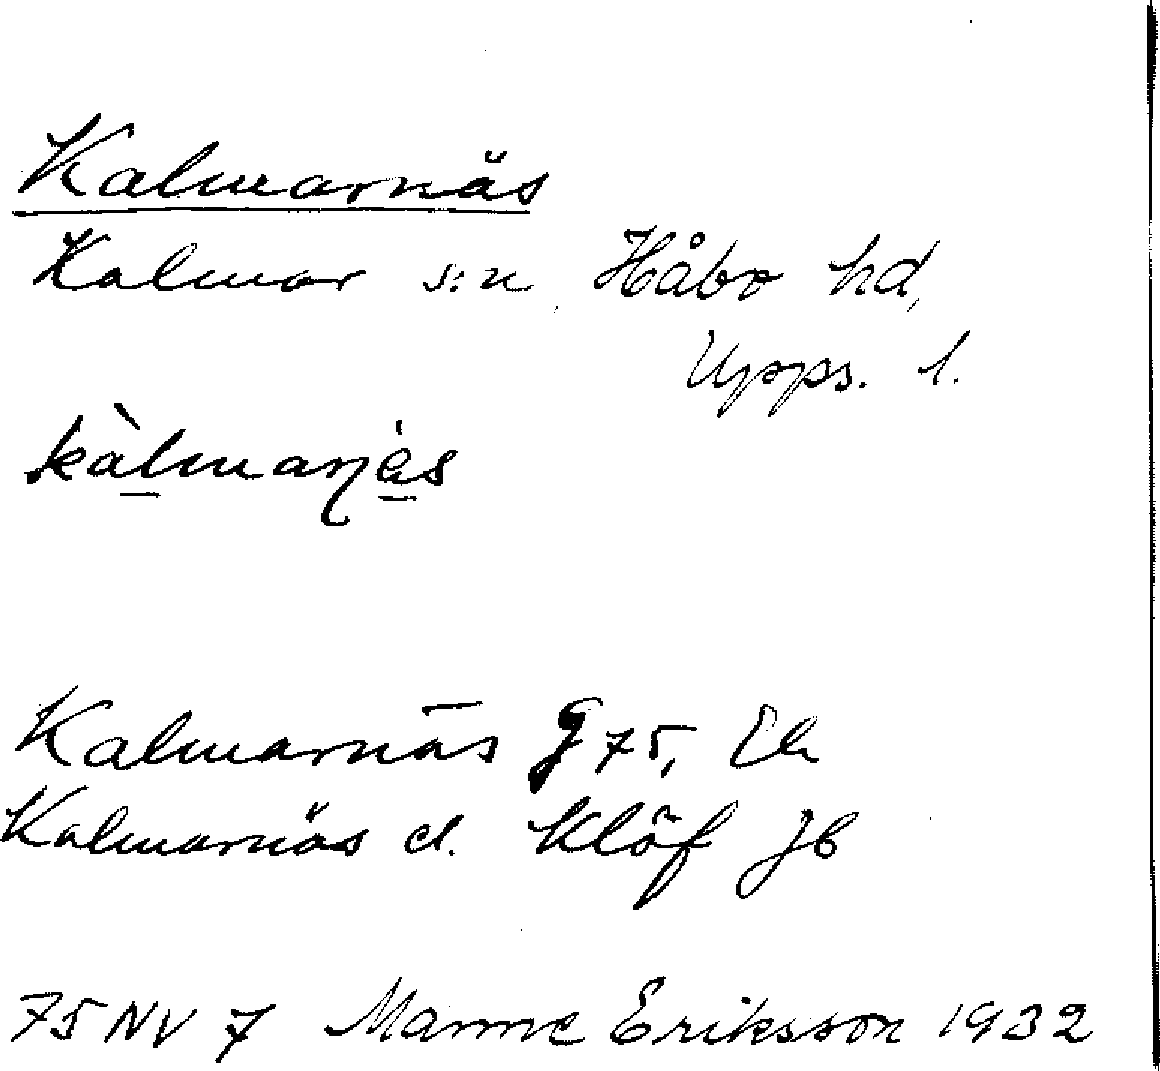 Kalmarnäs
Kalmar s:n, Håbo hd,
Upps. l.
kàlmaŋäs
Kalmarnäs G 75, Ek
Kalmarnäs el. Klöf Jb
75 NV 7 Manne Eriksson 1932